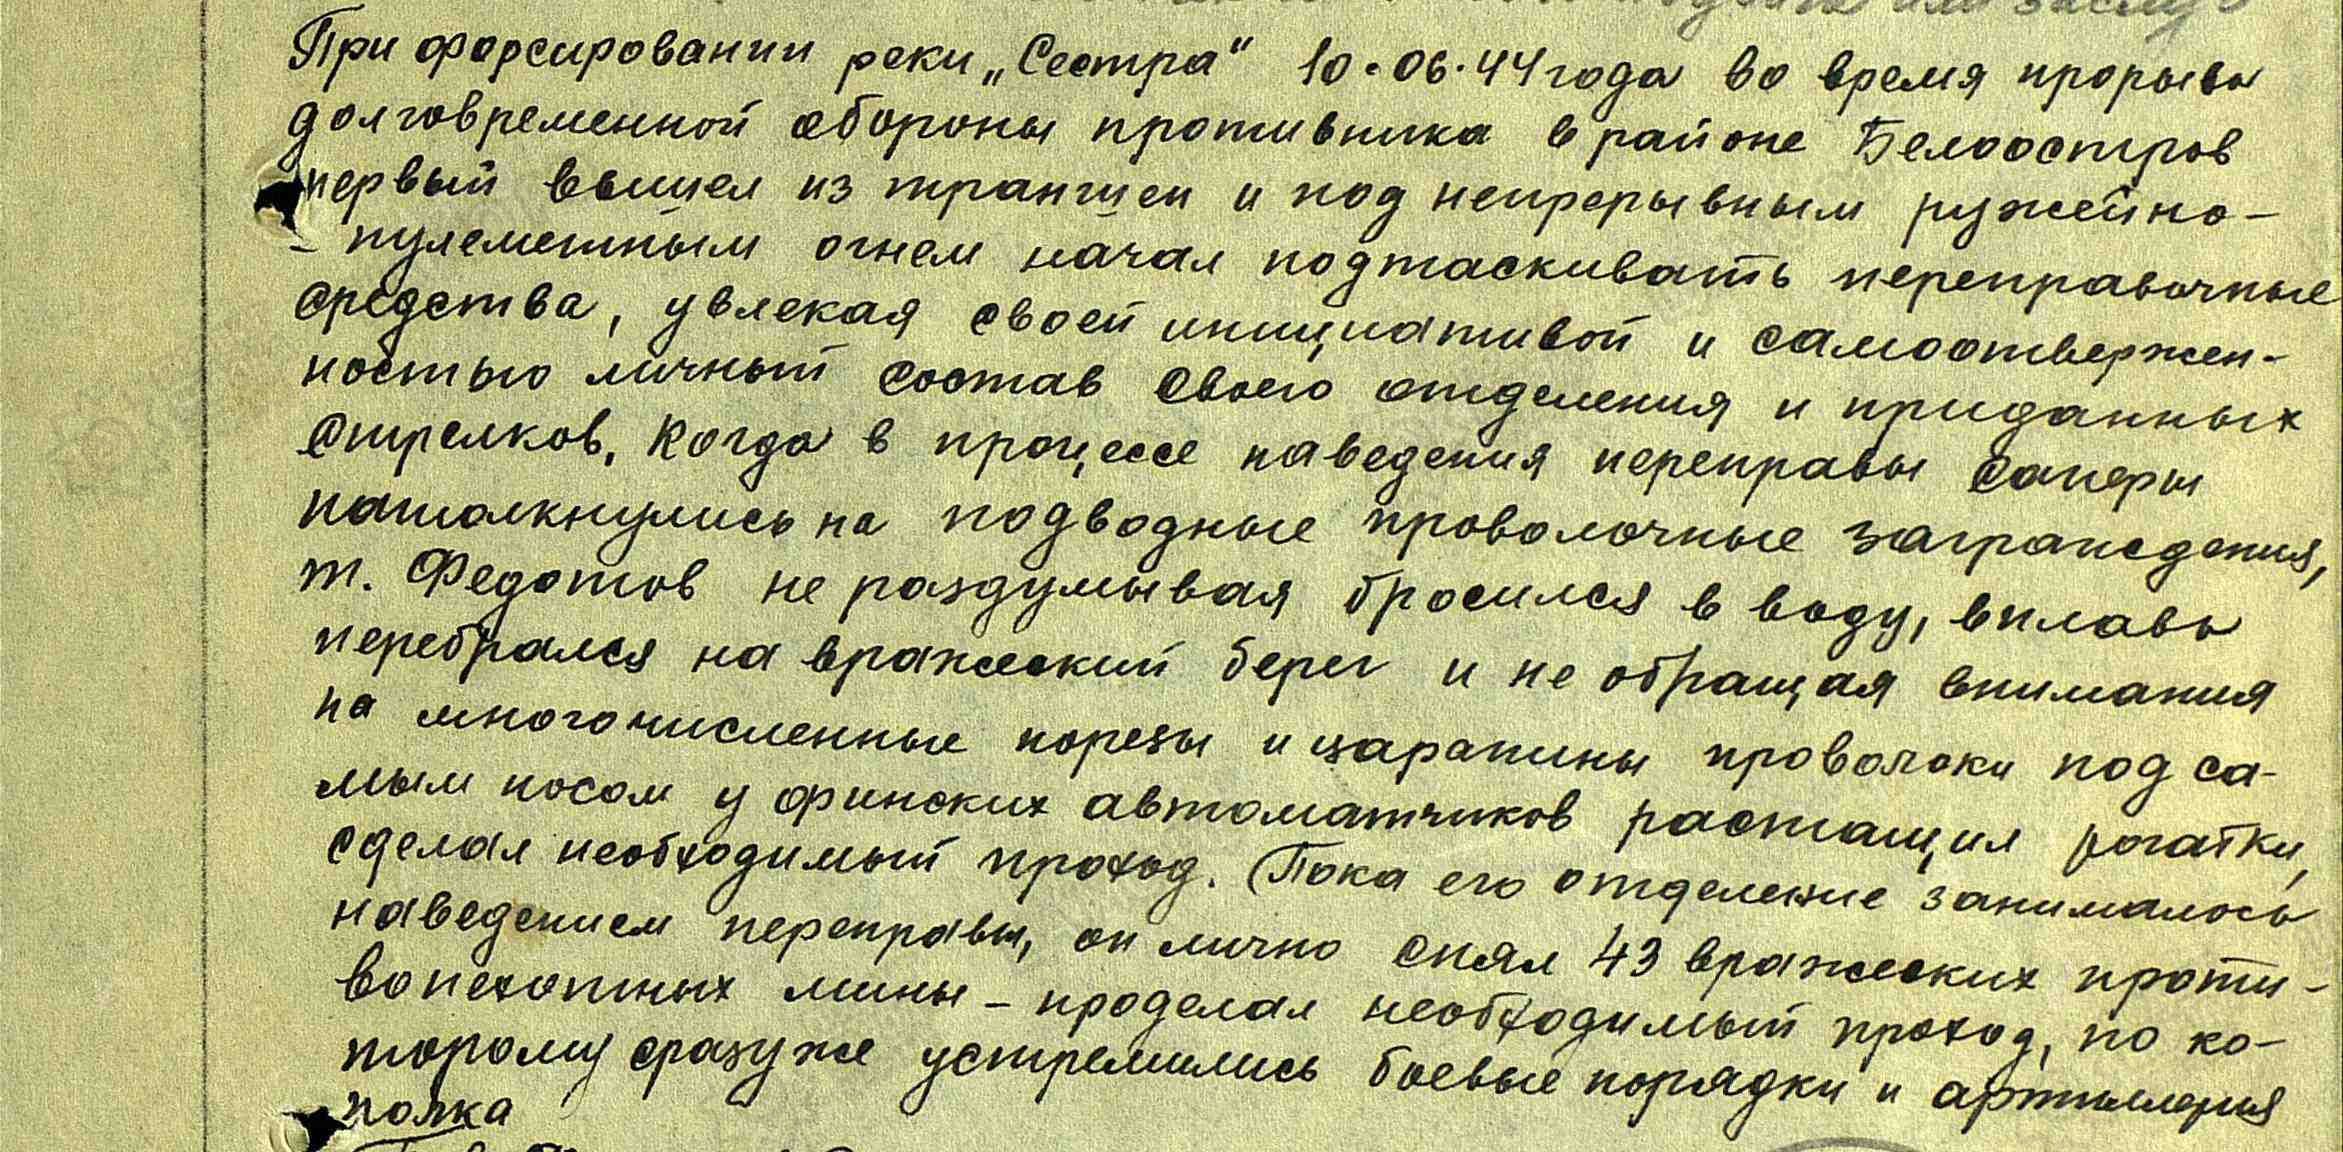 или заслуг
При форсировании реки „Сестра" 10.06.44 года во время прорыва
долговременной обороны противника в районе Белоостров
первый вышел из траншеи и под непрерывным ружейно-
- пулеметным огнем начал подтаскивать переправочные
средства, увлекая своей инициативой и самоотвержен-
ностью личный состав своего отделения и приданных
стрелков. Когда в процессе наведения переправы саперы
натолкнулись на подводные проволочные заграждения,
т. Федотов не раздумывая бросился в воду, вплавь
перебрался на вражеский берег и не обращая внимания
на многочисленные порезы и царапины проволоки под са-
мым носом у финских автоматчиков растащил рогатки,
сделал необходимый проход. Пока его отделение занималось
наведением переправы, он лично снял 43 вражеских проти-
вопехотных мины - проделал необходимый проход, по ко-
торому сразу же устремились боевые порядки и артиллерия
полка